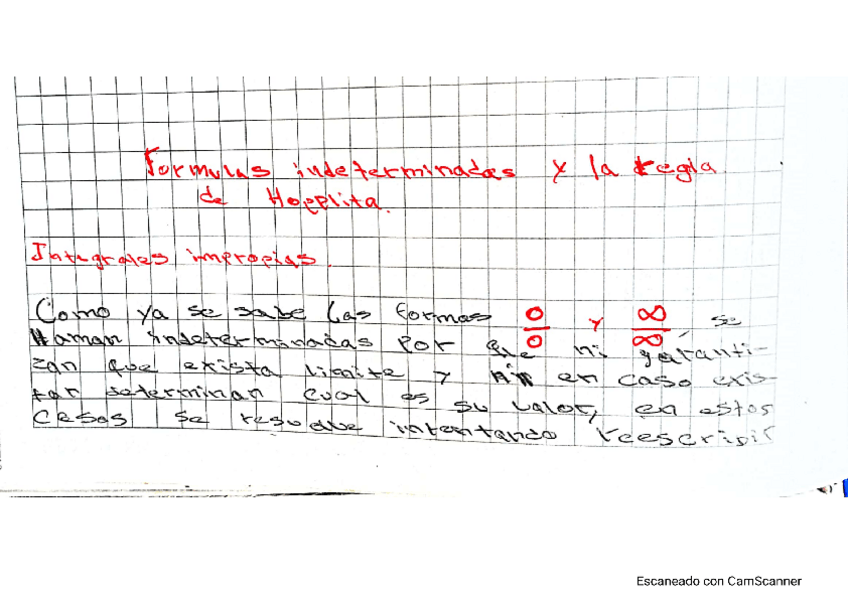 Formulas indeterminadas y la regla
de Hopplita.
Integrales impropias.
Como ya se sabe las formas 0/0 y ∞/∞, se
llaman indeterminadas por que ni garanti-
zan que exista limite y ni en caso exis-
tar determinan cual es su valor, en estos
casos se resuelve intentando reescribir
Escaneado con CamScanner